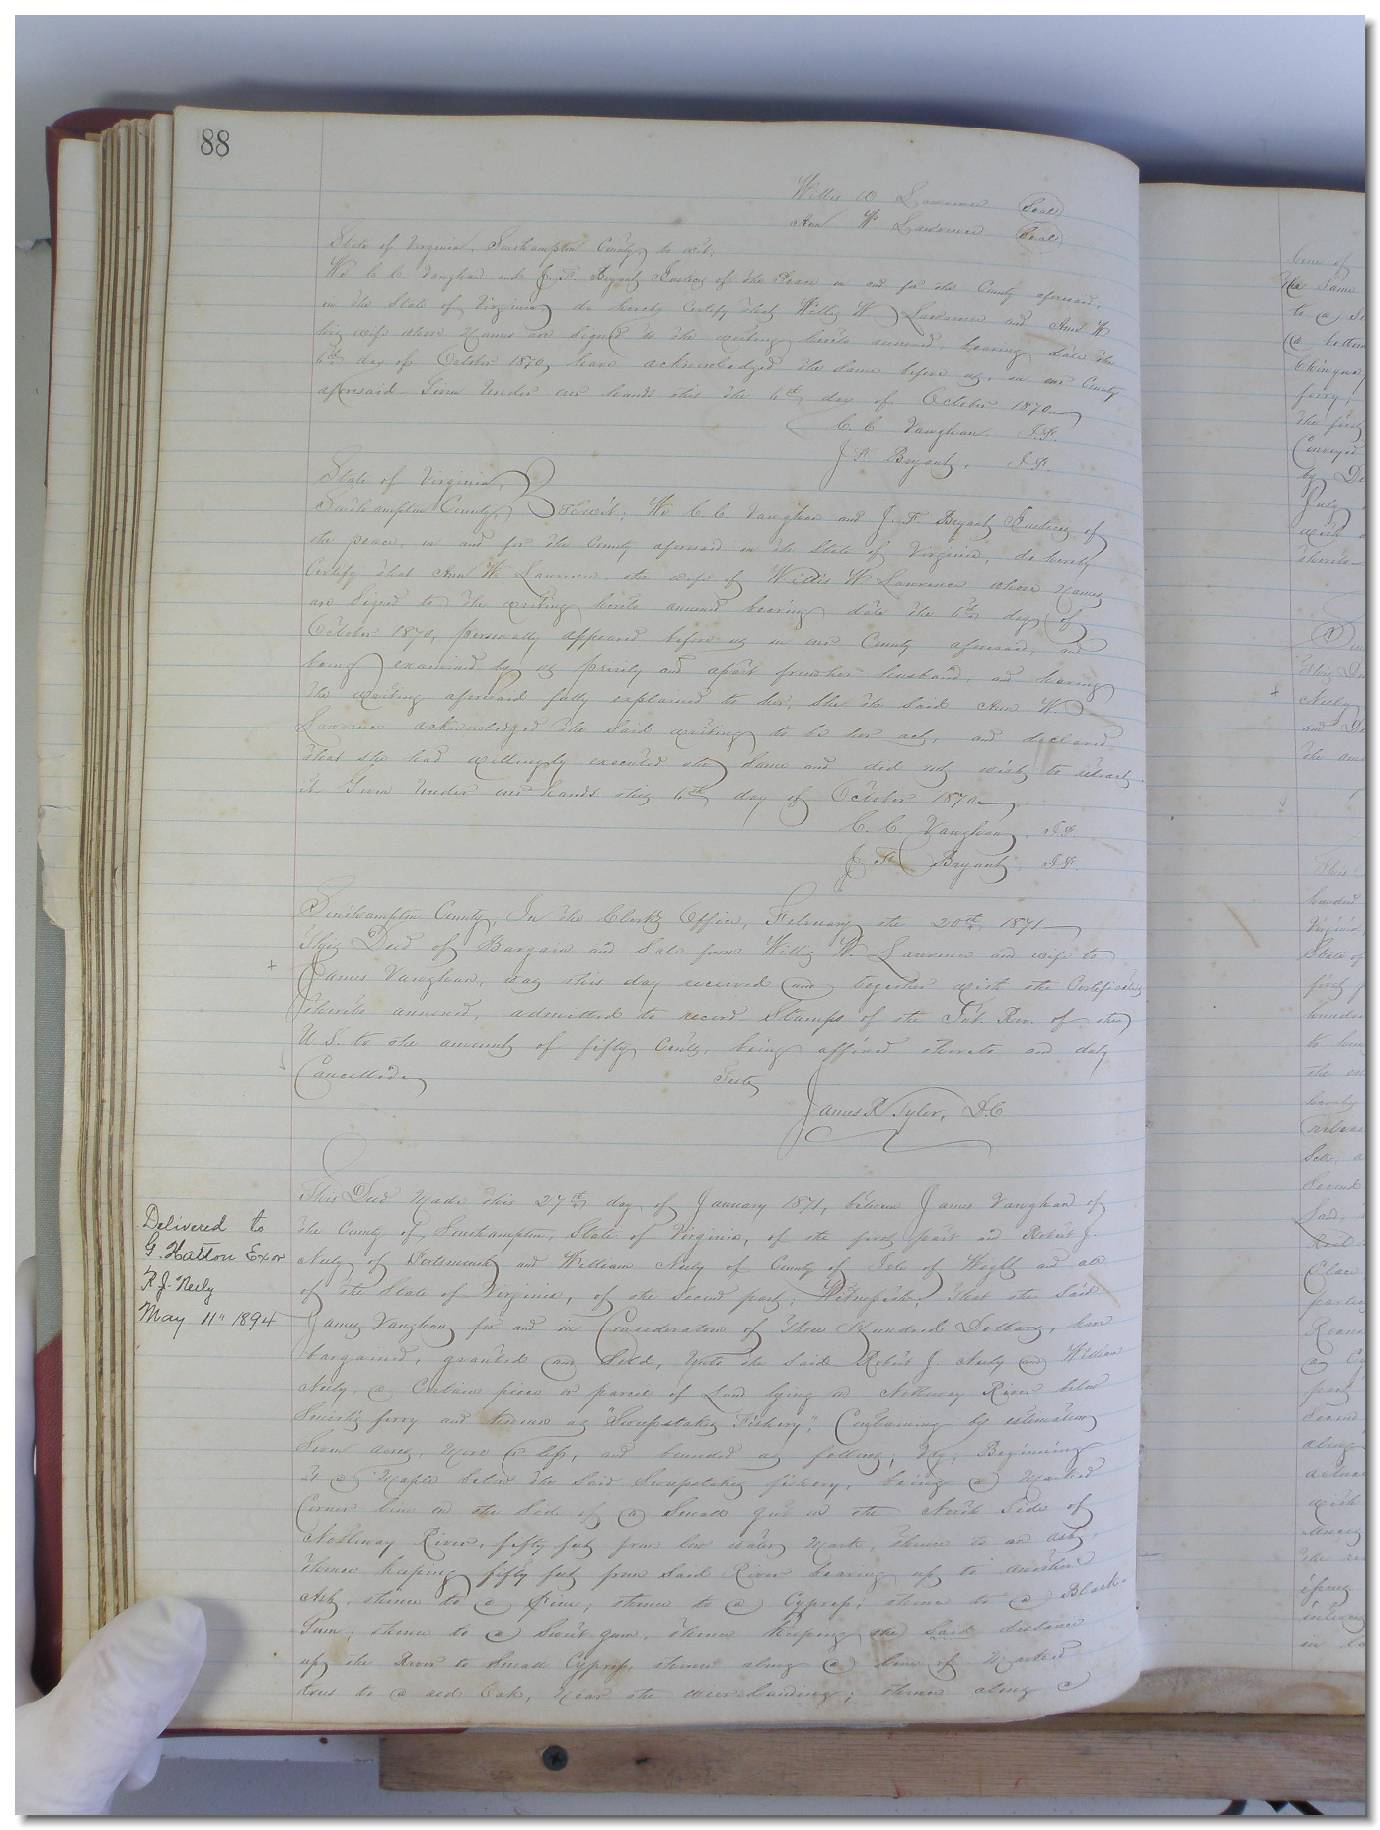 88
Willis W Lawrence (Seal)
Ann W Lawrence (Seal)
State of Virginia, Southampton County, to wit;
We C. C. Vaughan and J. F. Bryant Justices of the Peace in and for the County aforesaid,
in the State of Virginia, do hereby Certify that Willis W Lawrence and Ann W
his wife whose Names are Signed to the writing hereto annexed, bearing date the
6th day of October 1870, have acknowledged the same before us, in our County
aforesaid Given Under our hands this the 6th day of October 1870
C. C Vaughan. J.P.
J. F. Bryant, J.P.
State of Virginia,
Southampton County, Towit; We C. C. Vaughan and J. F. Bryant Justices of
the peace, in and for the County aforesaid in the State of Virginia, do hereby
Certify that Ann W. Lawrence, the wife of Willis W Lawrence whose Names
are Signed to the writing hereto annexed bearing date the 6th day of
October 1870, personally appeared before us in our County aforesaid, and
being examined by us privily and apart from her husband, and having
the writing aforesaid fully explained to her, She the Said Ann W.
Lawrence acknowledged the Said writing to be her act, and declared
that she had willingly executed the Same and did not wish to retract
it Given Under our hands this 6th day of October 1870
C. C. Vaughan, J.P.
J. F. Bryant, J.P.
Southampton County, In the Clerks Office, February the 20th, 1871
This Deed of Bargain and Sale from Willis W. Lawrence and wife to
+ James Vaughan, was this day received and together with the Certificates
thereto annexed, admitted to record Stamps of the Int. Rev. of the
U. S. to the amount of fifty Cents, being affixed thereto and duly
Cancelled Teste
James R Tyler, D.C
This Deed Made this 27th day of January 1871, between James Vaughan of
the County of Southampton, State of Virginia, of the first part and Robert J.
Neely of Portsmouth and William Neely of County of Isle of Wight and all
of the State of Virginia, of the Second part; Witnesseth; That the Said
James Vaughan for and in Consideration of Three Hundred Dollars, have
bargained, granted and Sold, Unto the Said Robert J. Neely and William
Neely, a Certain piece or parcel of Land lying on Nottoway River below
Smith's ferry and known as "Sweepstakes Fishery", Containing by estimation
Seven acres, More or less, and bounded as follows; Viz, Beginning
at a Maple below the Said Sweepstakes fishery, being a Marked
Corner line on the Side of a Small gut on the North Side of
Nottoway River, fifty feet from low water Mark, thence to an ash,
thence keeping fifty feet from Said River bearing up to another
Ash, thence to a Pine, thence to a Cypress; thence to a Black
Gum, thence to a Sweet gum, thence keeping the Said distance
up the River to Small Cypress, thence along a line of Marked
trees to a red Oak, Near the weir landing; thence along a
Delivered to
G. Hatton Exor
R. J. Neely
May 11" 1894
line of
the Same
to a
a bottom
ferry;
the first
Conveyed
by De
July
with
thereto
This De
+ Neely
and De
the am
This
hundred
Virginia
State of
first p
hundred
to
the
hereby
release
Sell, a
Second
Said,
Place
parties
a Cy
Second
along
with
in